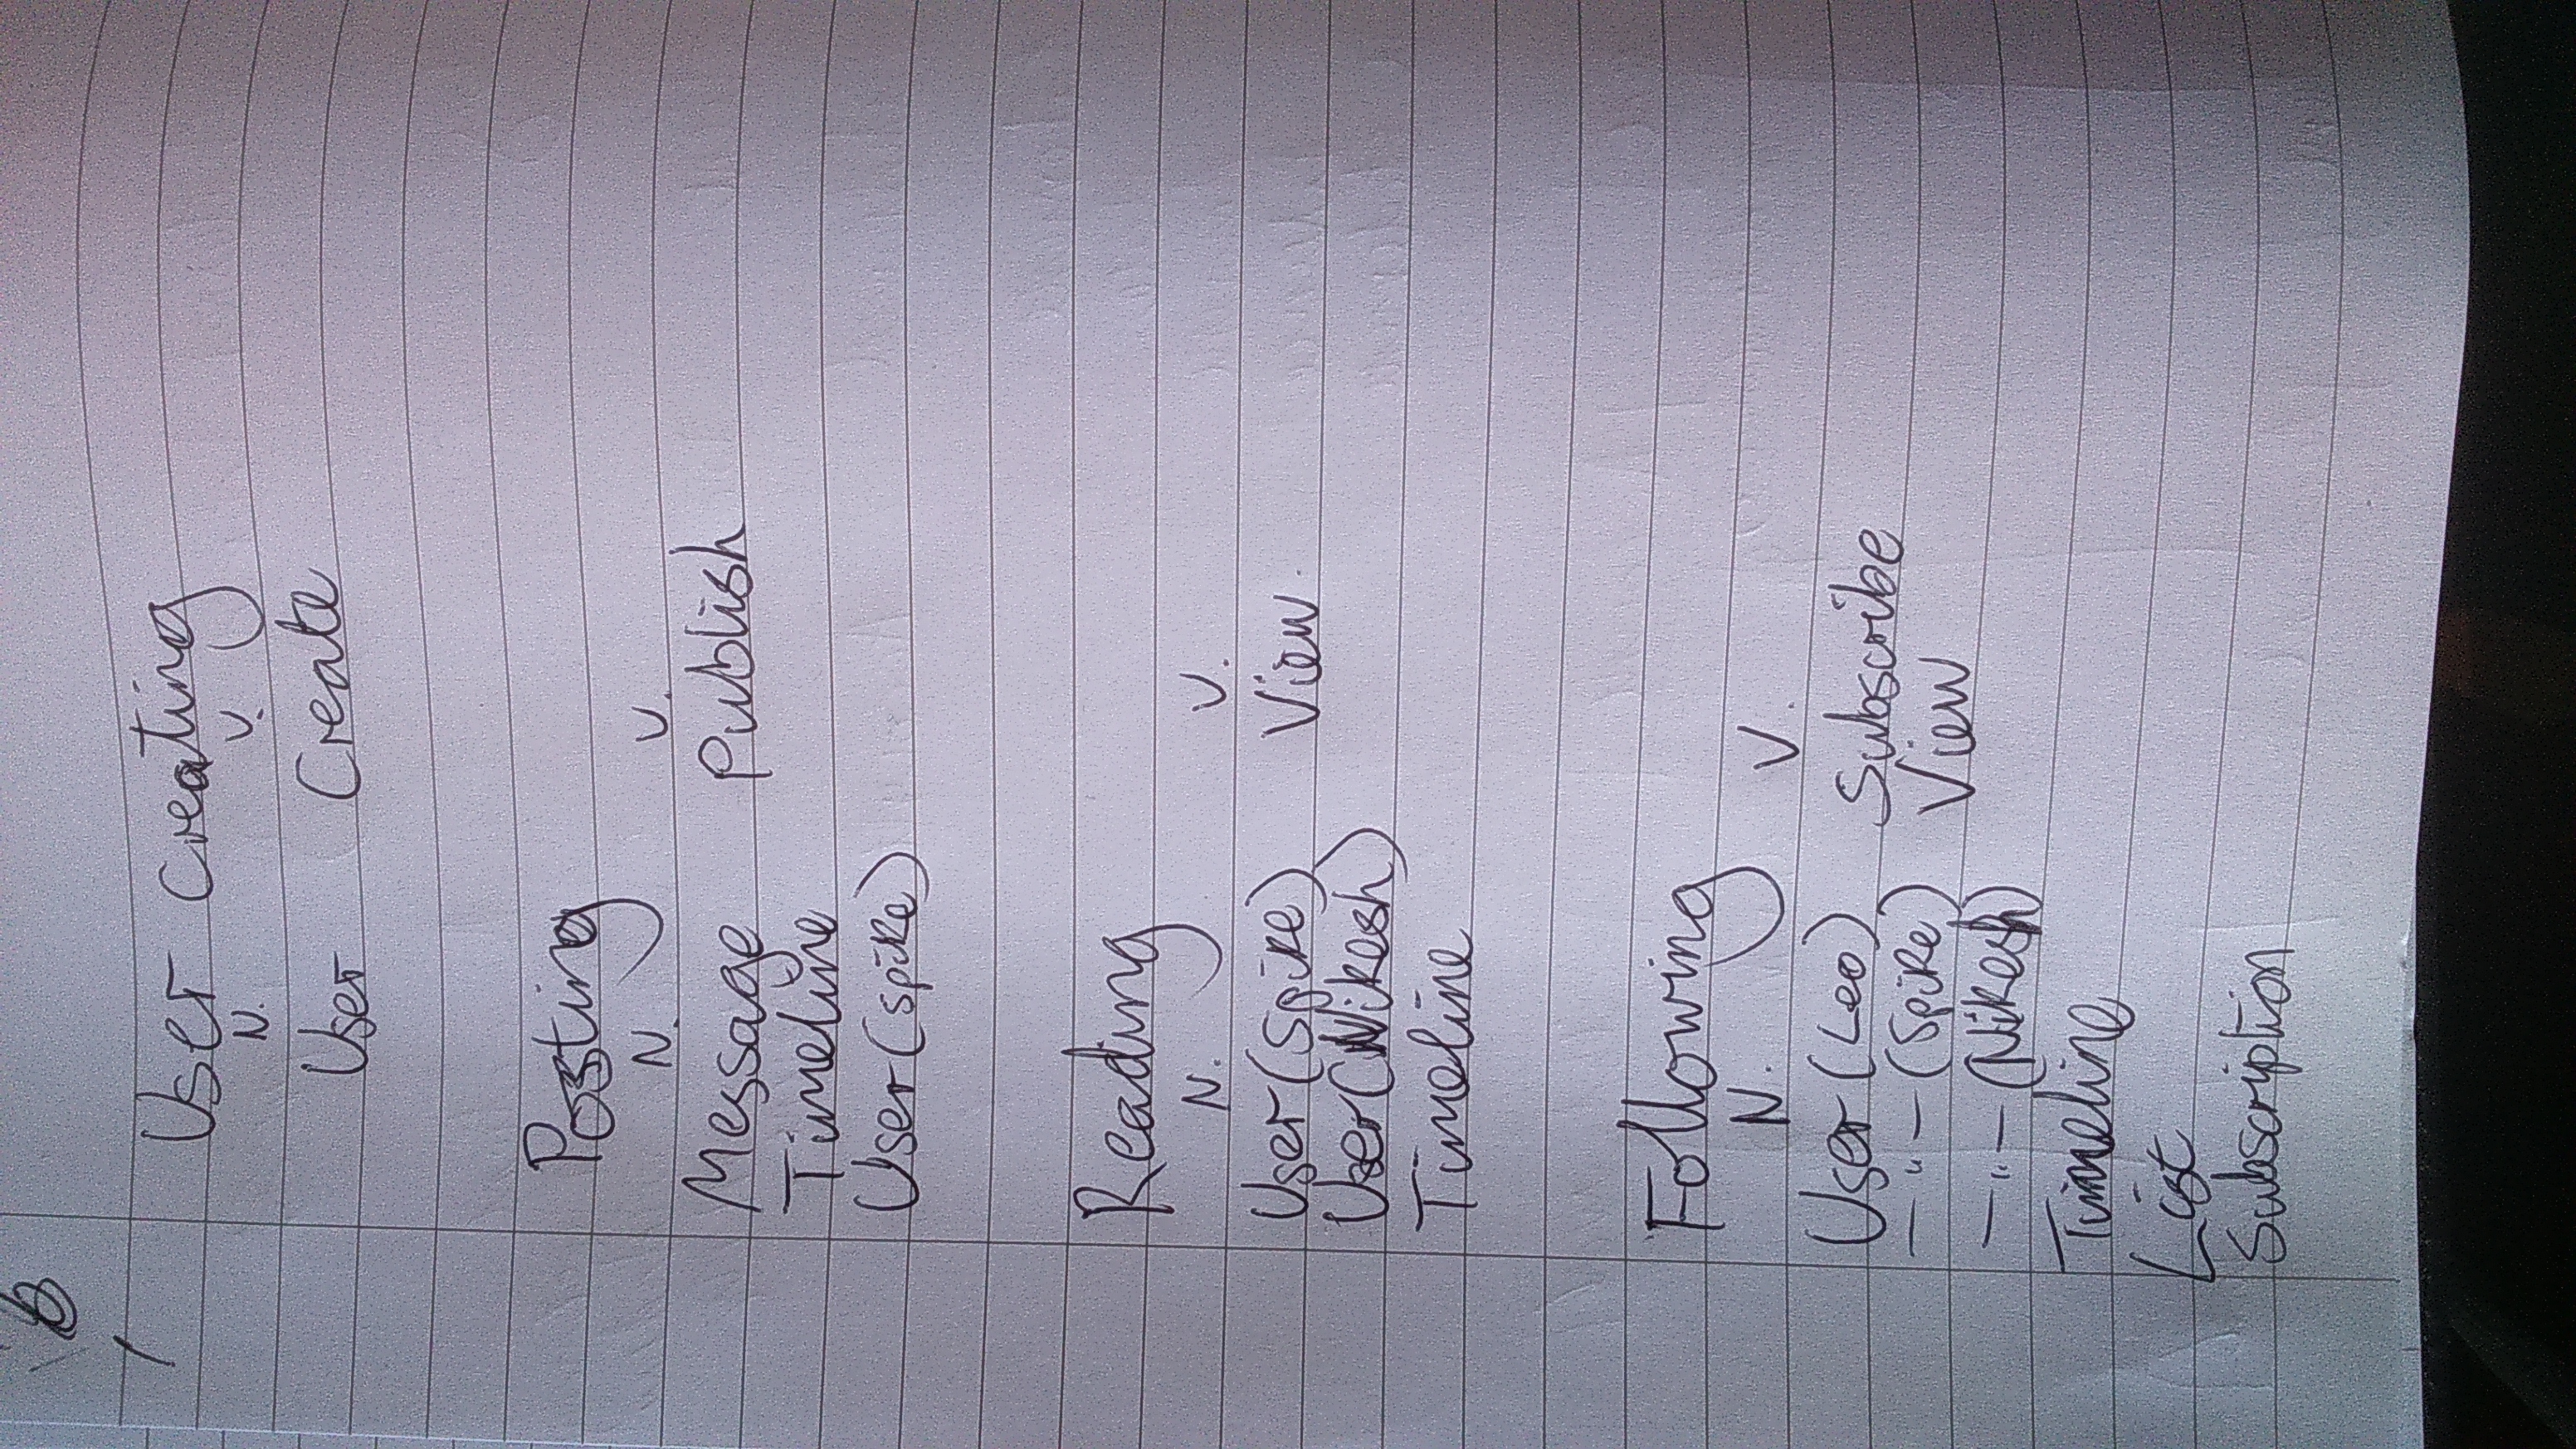 User Creating
N. V.
User Create
Posting
N. V.
Message Publish
Timeline
User (Spike)
Reading
N. V.
User (Spike) View
User (Nikesh)
Timeline
Following
N. V.
User (Leo) Subscribe
—"— (Spike) View
—"— (Nikesh)
Timeline
List
Subscription